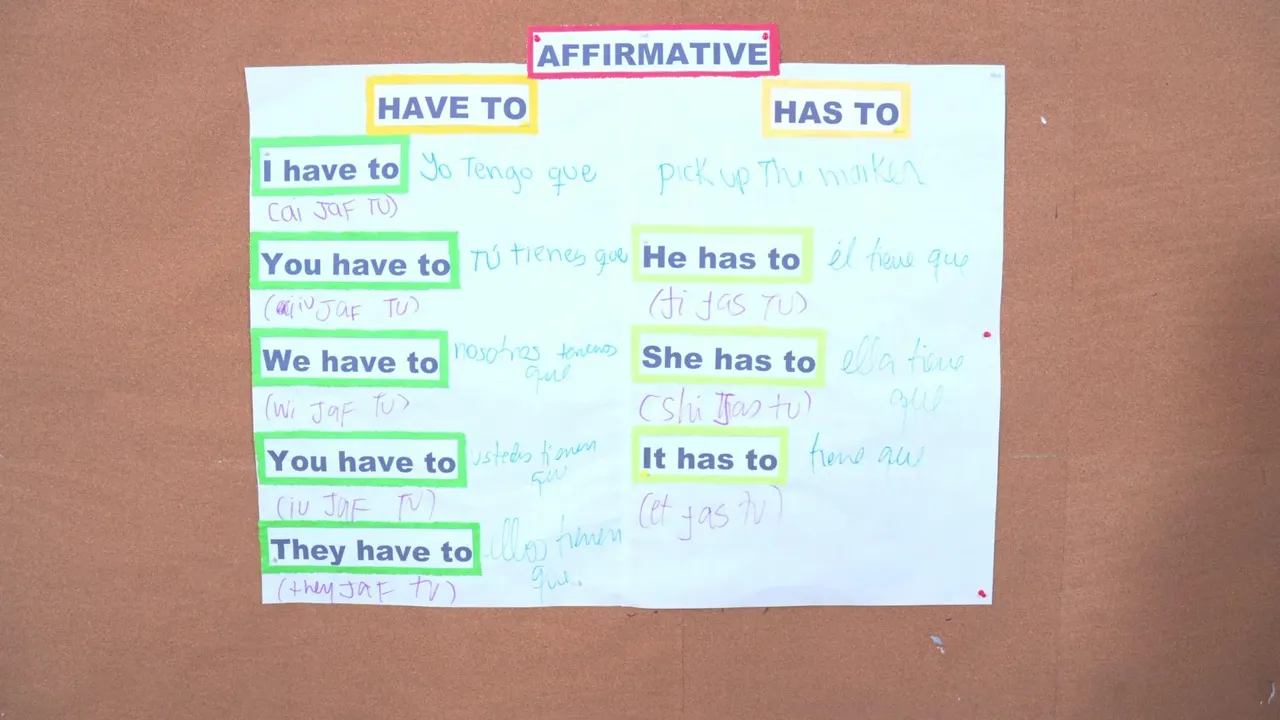 AFFIRMATIVE
HAVE TO
I have to Yo Tengo que
(ai JaF TU)
You have to TÚ tienes que
(iu JaF TU)
We have to nosotros tenemos
que
(wi JaF TU)
You have to ustedes tienen
que
(iu JaF TU)
They have to ellos tienen
que.
(they JaF TU)
HAS TO
pick up The marker
He has to él tiene que
(Ji Jas TU)
She has to ella tiene
que
(shi Jas tu)
It has to tiene que
(et Jas tU)